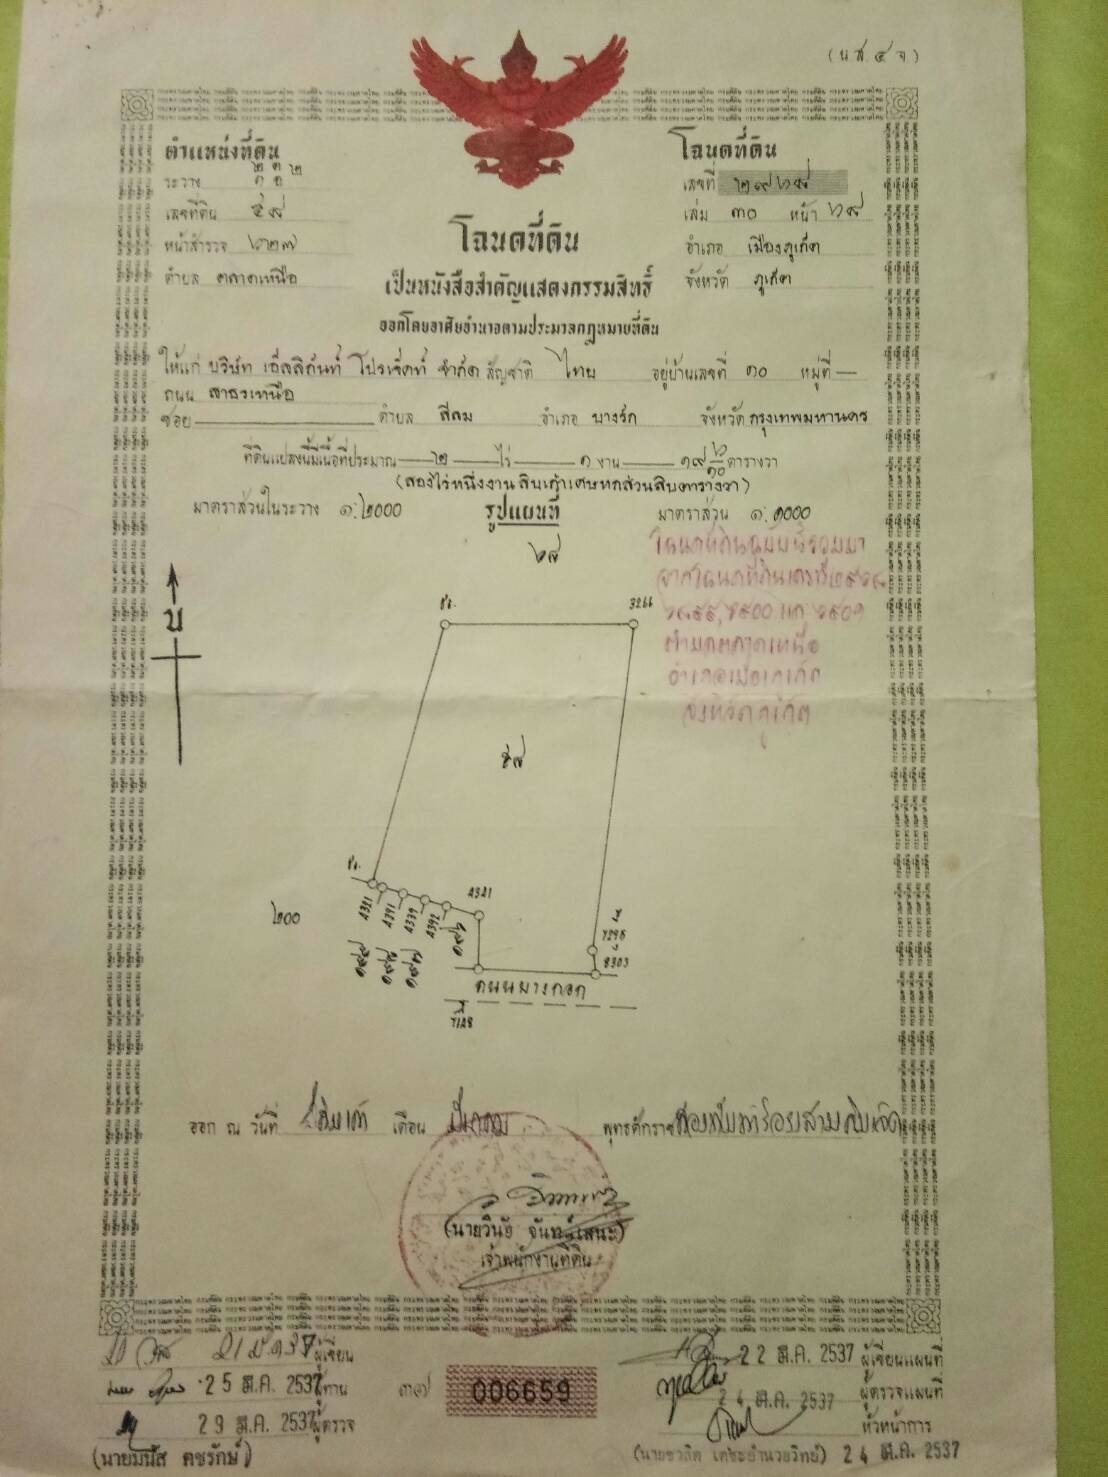 (น.ส. ๔ จ)
ตำแหน่งที่ดิน
ระวาง
เลขที่ดิน ๕๘
หน้าสำรวจ ๖๒๗
ตำบล ตลาดเหนือ
โฉนดที่ดิน
เลขที่
เล่ม ๓๐ หน้า ๖๘
อำเภอ เมืองภูเก็ต
จังหวัด ภูเก็ต
โฉนดที่ดิน
เป็นหนังสือสำคัญแสดงกรรมสิทธิ์
ออกโดยอาศัยอำนาจตามประมวลกฎหมายที่ดิน
ให้แก่ บริษัท เอ็ลลิกันท์ โปรเจ็คท์ จำกัด สัญชาติ ไทย อยู่บ้านเลขที่ ๓๐ หมู่ที่ —
ถนน สาธรเหนือ
ซอย ตำบล สีลม อำเภอ บางรัก จังหวัด กรุงเทพมหานคร
ที่ดินแปลงนี้มีเนื้อที่ประมาณ ๒ ไร่ ๑ งาน ๑๙ ๖/๑๐ ตารางวา
(สองไร่หนึ่งงานสิบเก้าเศษหกส่วนสิบตารางวา)
มาตราส่วนในระวาง ๑:๒๐๐๐ รูปแผนที่ มาตราส่วน ๑:๑๐๐๐
โฉนดที่ดินฉบับนี้รวมมา
ตำบลตลาดเหนือ
อำเภอเมืองภูเก็ต
จังหวัดภูเก็ต
น
3266
๕๘
4341
๒๐๐
8303
ถนนบางกอก
ออก ณ วันที่ เดือน มีนาคม พุทธศักราช สองพันห้าร้อยสามสิบเจ็ด
(นายวินัย จันทน์เสนะ)
เจ้าพนักงานที่ดิน
ผู้เขียน
25 มี.ค. 2537 ผู้ทาน
29 มี.ค. 2537 ผู้ตรวจ
(นายมนัส คชรักษ์)
๓๗ 006659
22 มี.ค. 2537 ผู้เขียนแผนที่
24 มี.ค. 2537 ผู้ตรวจแผนที่
หัวหน้าการ
(นายชวลิต เตชะอำนวยวิทย์) 24 มี.ค. 2537